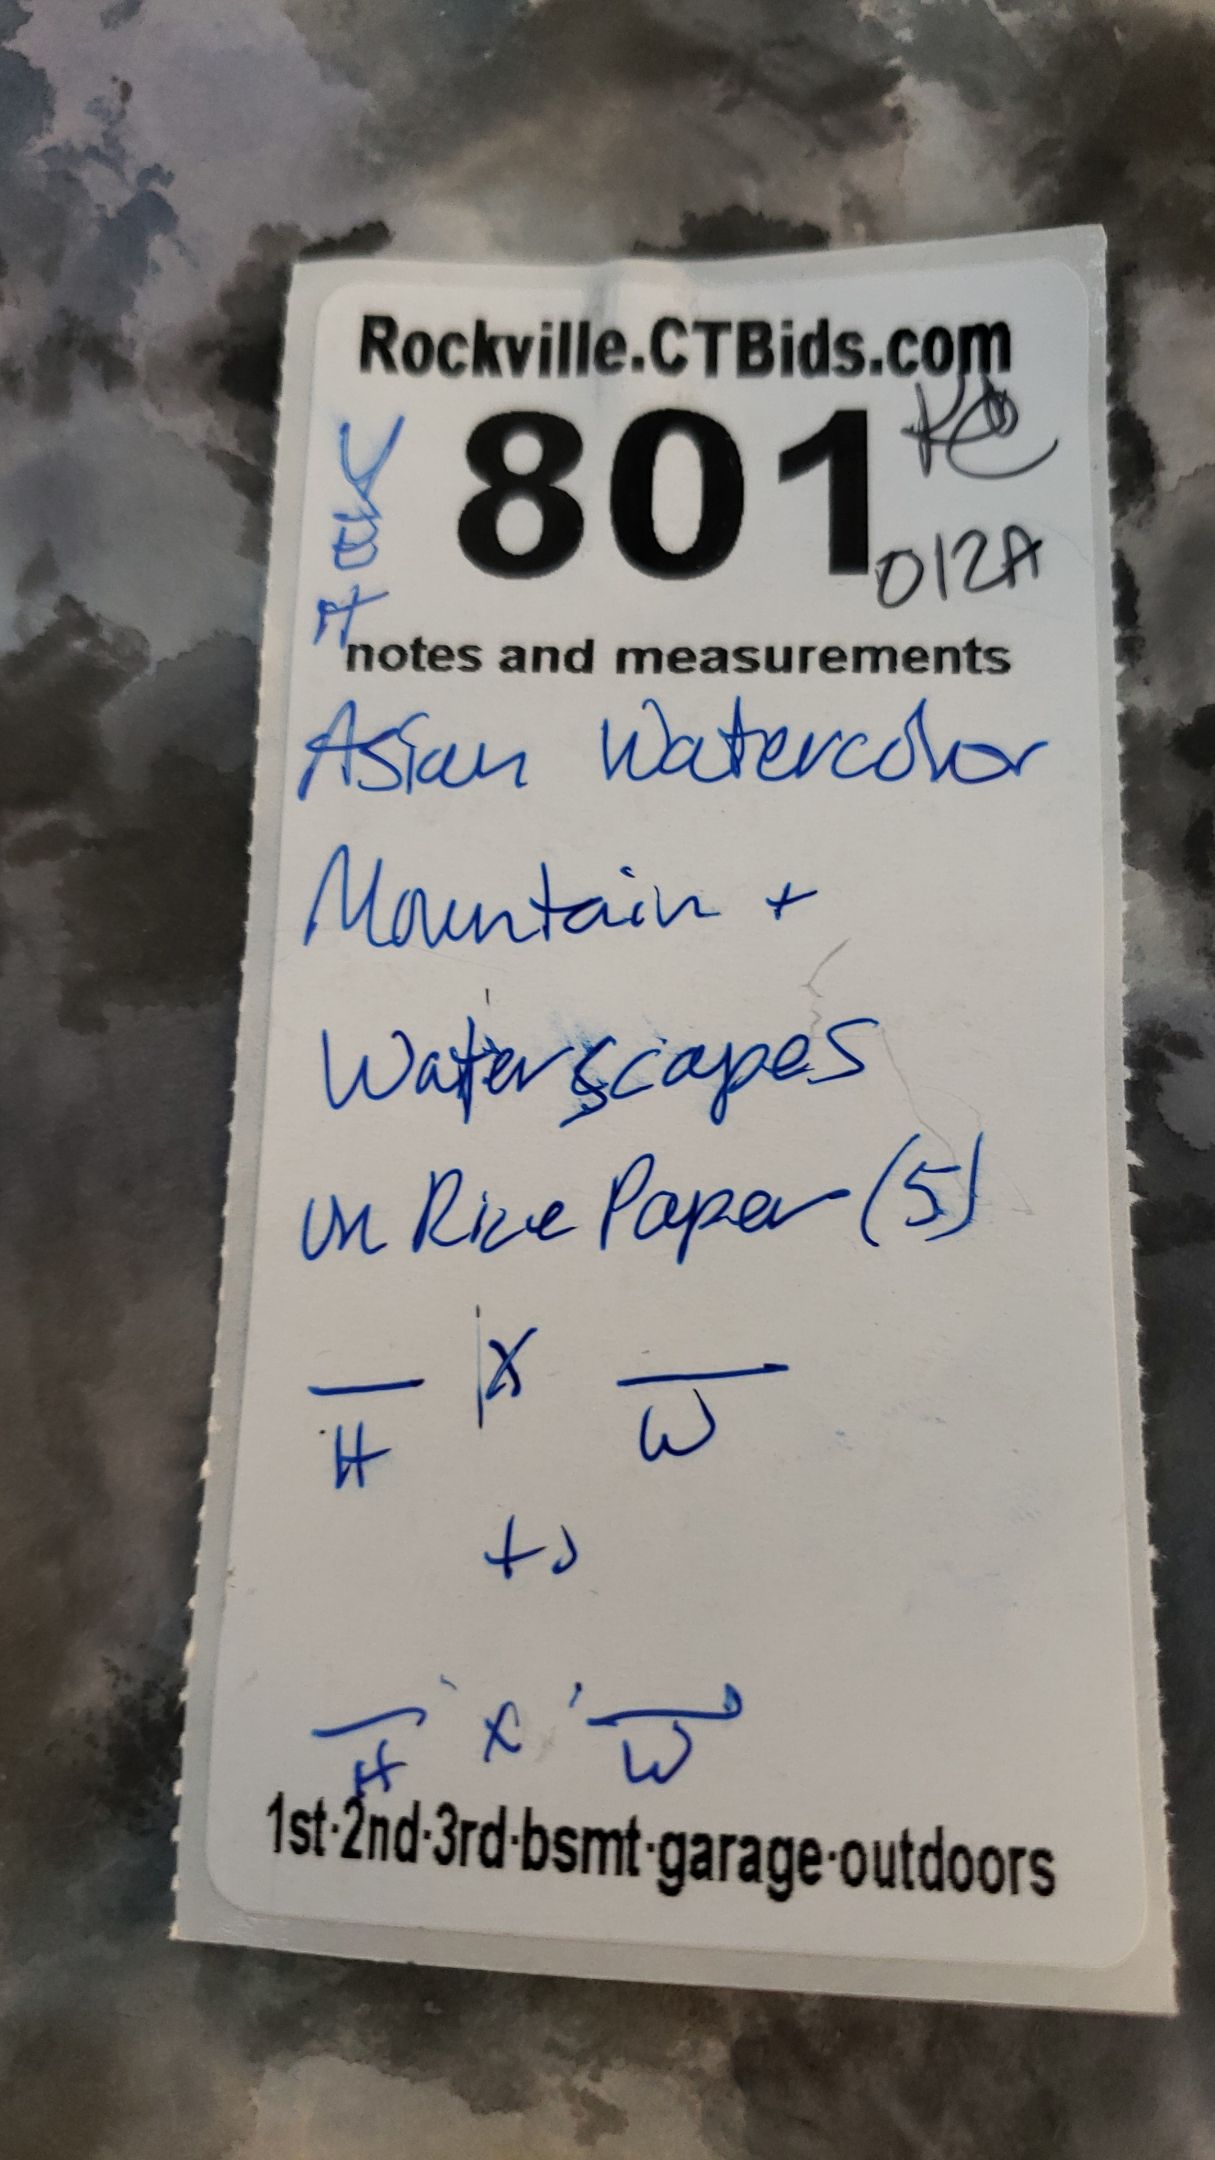 Rockville.CTBids.com
801
012A
notes and measurements
Asian Watercolor
Mountain +
Waterscapes
on Rice Paper (5)
H X W
to
H x W
1st·2nd·3rd·bsmt·garage·outdoors